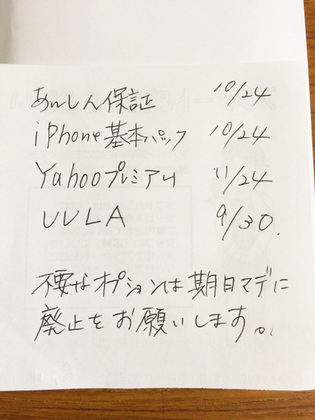 あんしん保証 10/24
iPhone基本パック 10/24
Yahooプレミアム 11/24
UULA 9/30.
不要なオプションは期日マデに
廃止をお願いします。